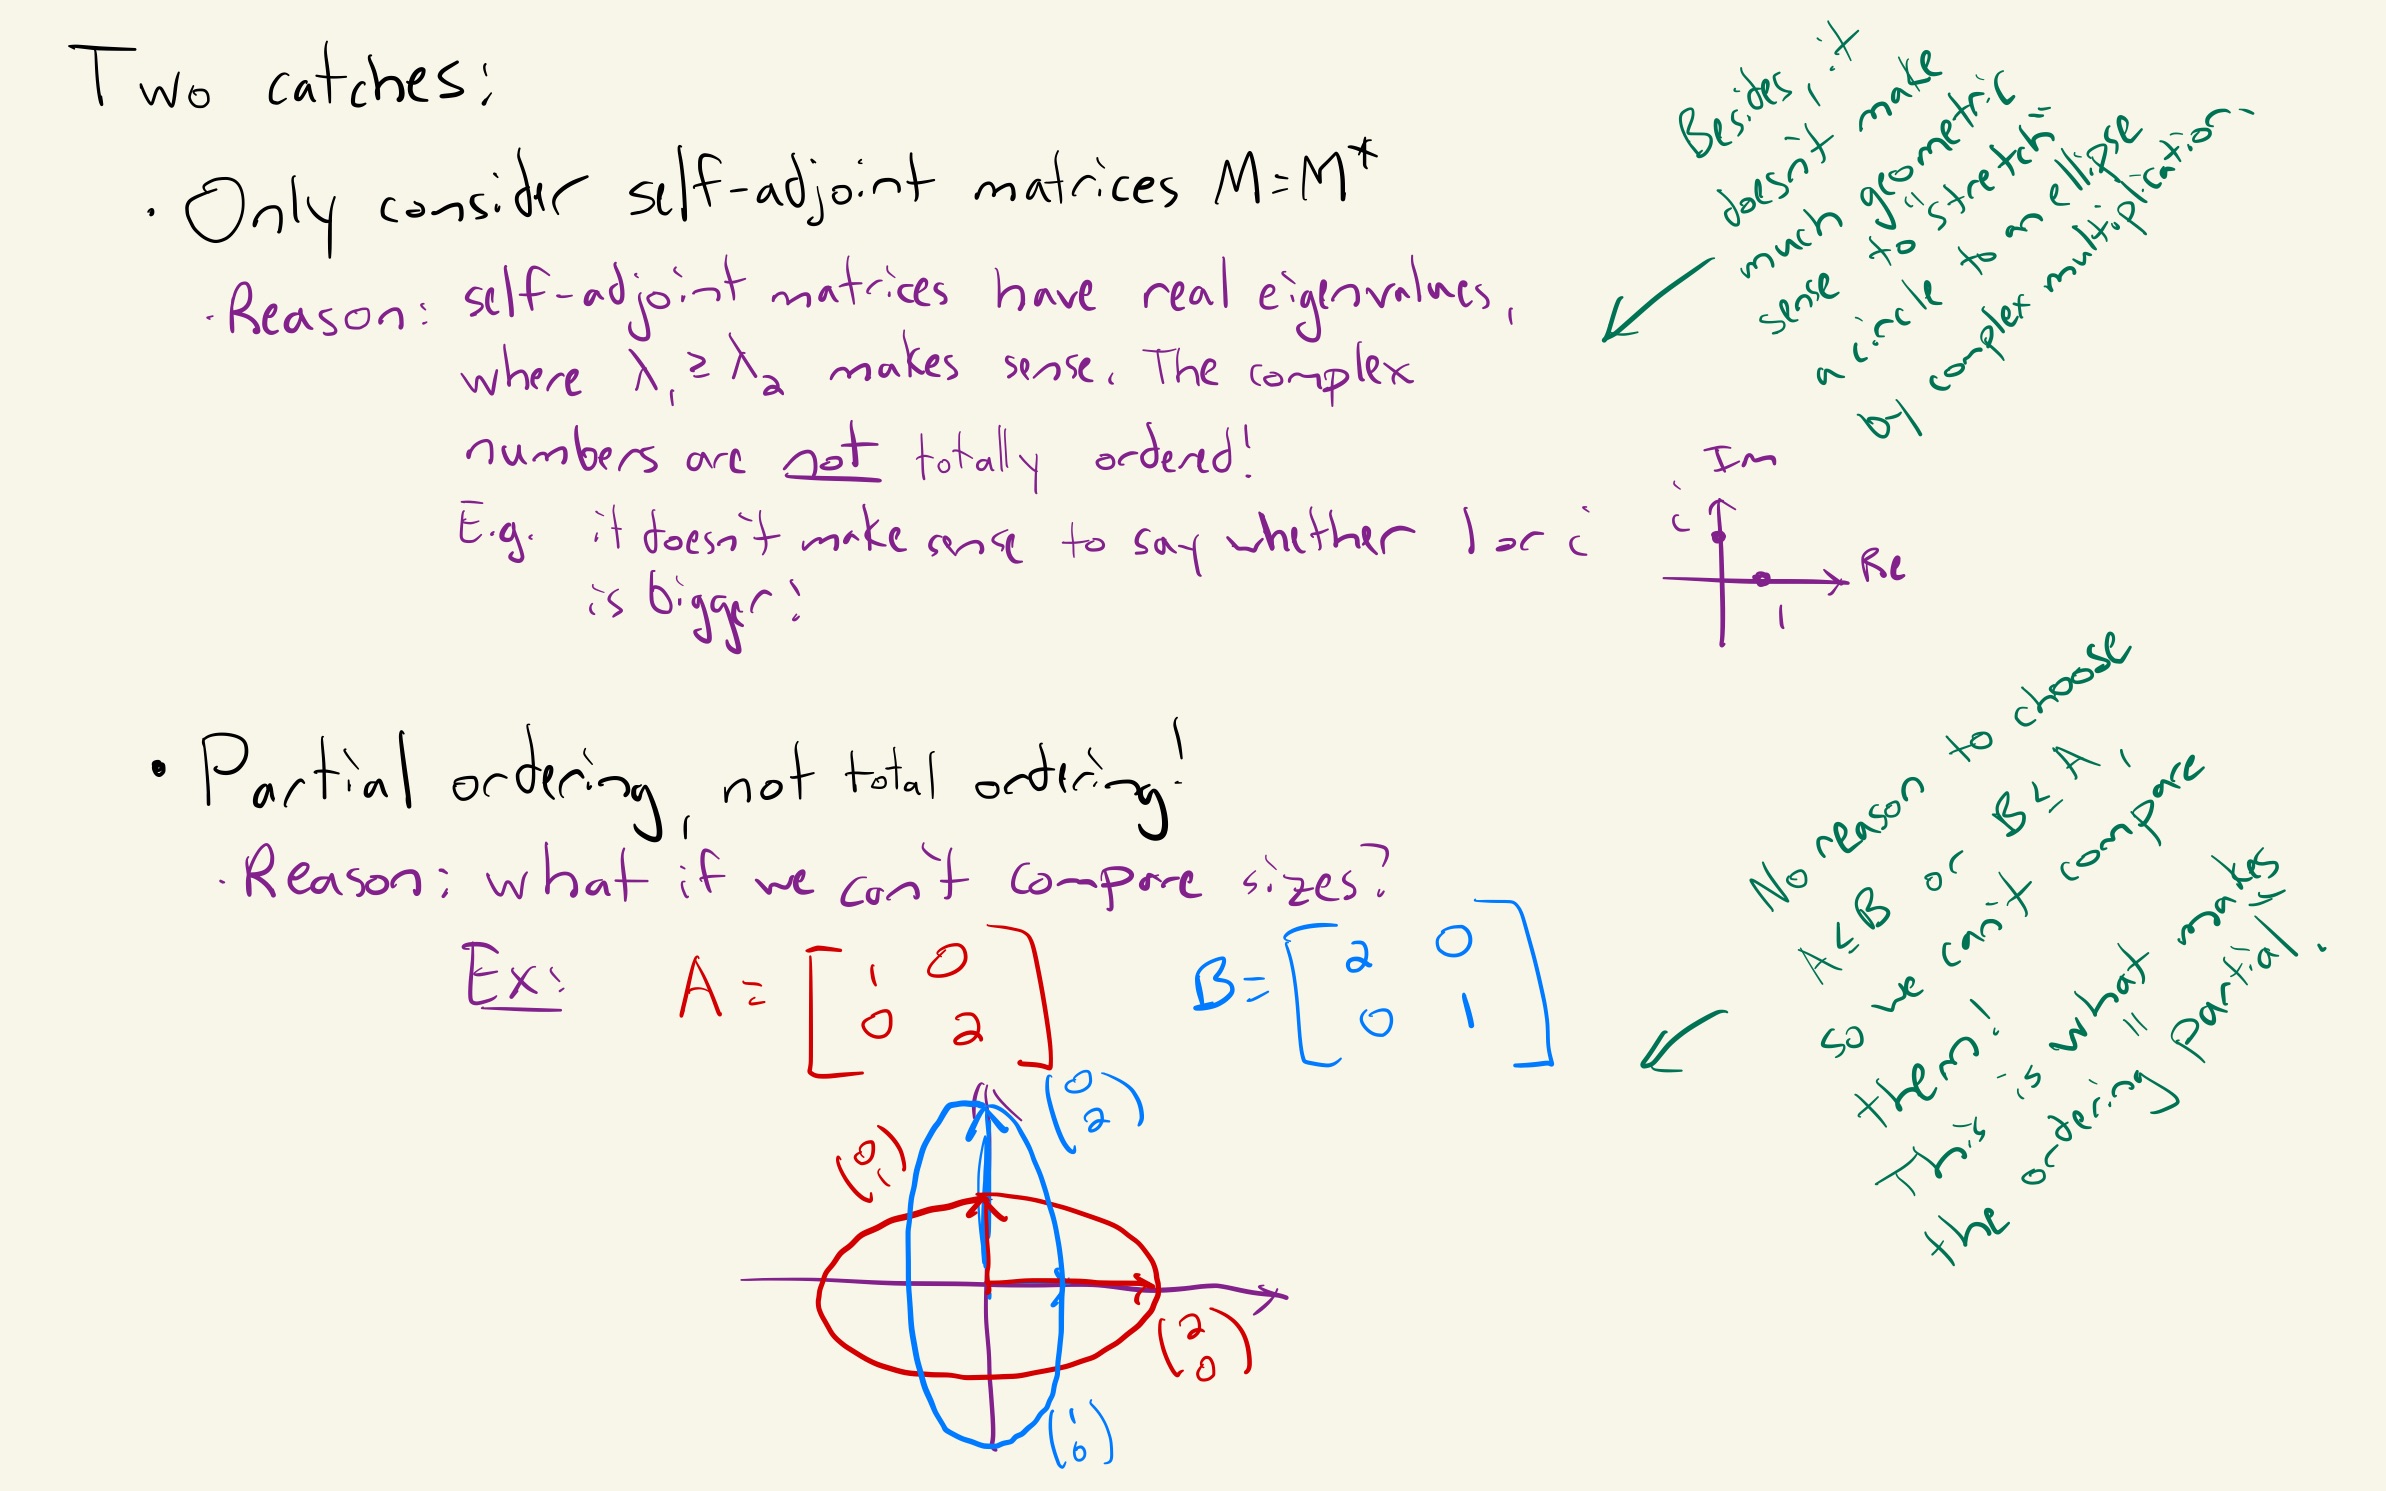 Two catches:
· Only consider self-adjoint matrices M=M*
· Reason: self-adjoint matrices have real eigenvalues,
where λ₁ ≥ λ₂ makes sense. The complex
numbers are not totally ordered!
E.g. it doesn't make sense to say whether 1 or i
is bigger!
Besides, it
doesn't make
much geometric
sense to "stretch"
a circle to an ellipse
by complex multiplication.
Im
i
Re
1
• Partial ordering, not total ordering!
· Reason: what if we can't compare sizes?
Ex: A = [1 0
0 2]
B = [2 0
0 1]
(0
2)
(0
1)
(2
0)
(1
0)
No reason to choose
A ≤ B or B ≤ A,
so we can't compare
them!
This is what makes
the ordering "partial".